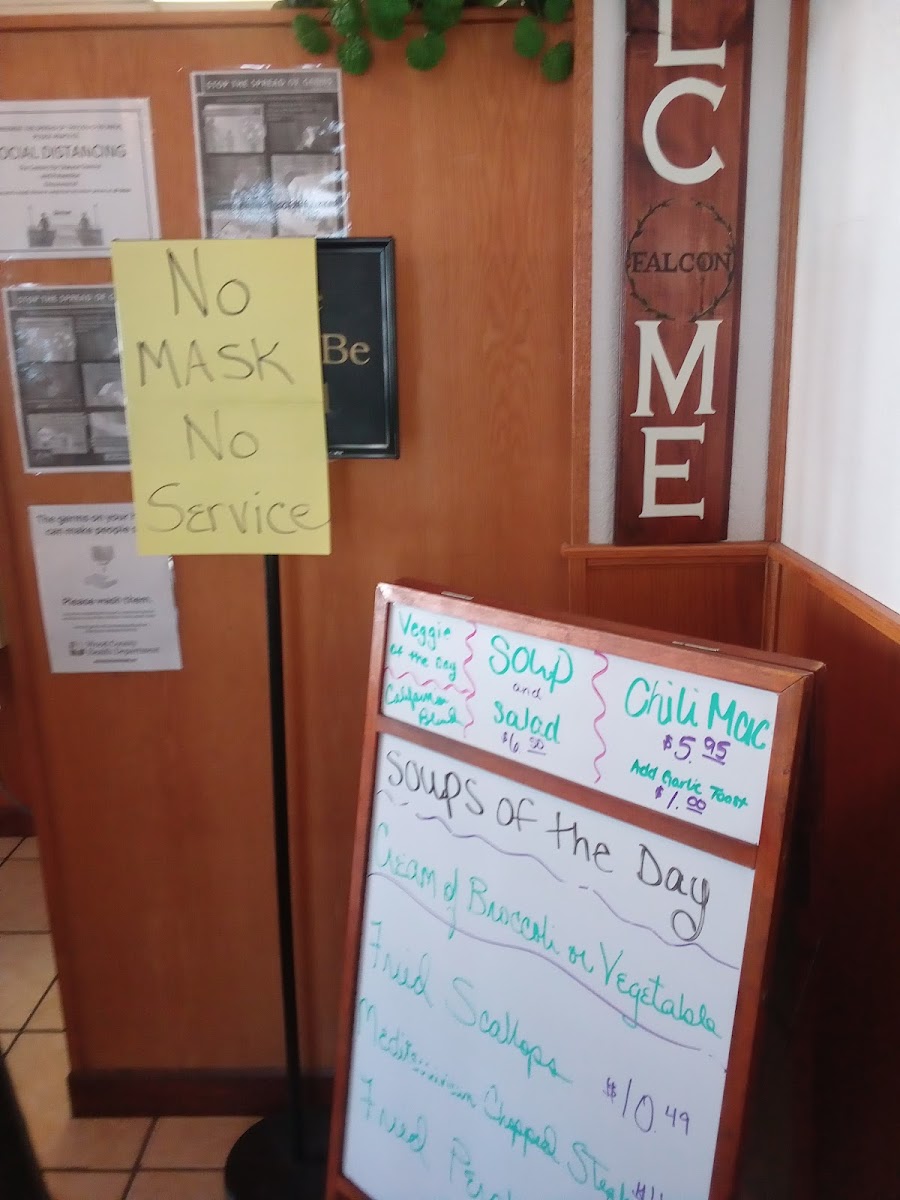 STOP THE SPREAD OF GERMS
SOCIAL DISTANCING
STOP THE SPREAD OF
No
MASK
No
Service
Be
The germs on your
can make people
Please wash them.
Wood County
Health Department
LC
FALCON
ME
Veggie
of the Day
California
Blend
Soup
and
Salad
$6.50
Chili Mac
$5.95
Add Garlic Toast
$1.00
Soups of the Day
Cream of Broccoli or Vegetable
Fried Scallops $10.49
Chopped Steak
Fried